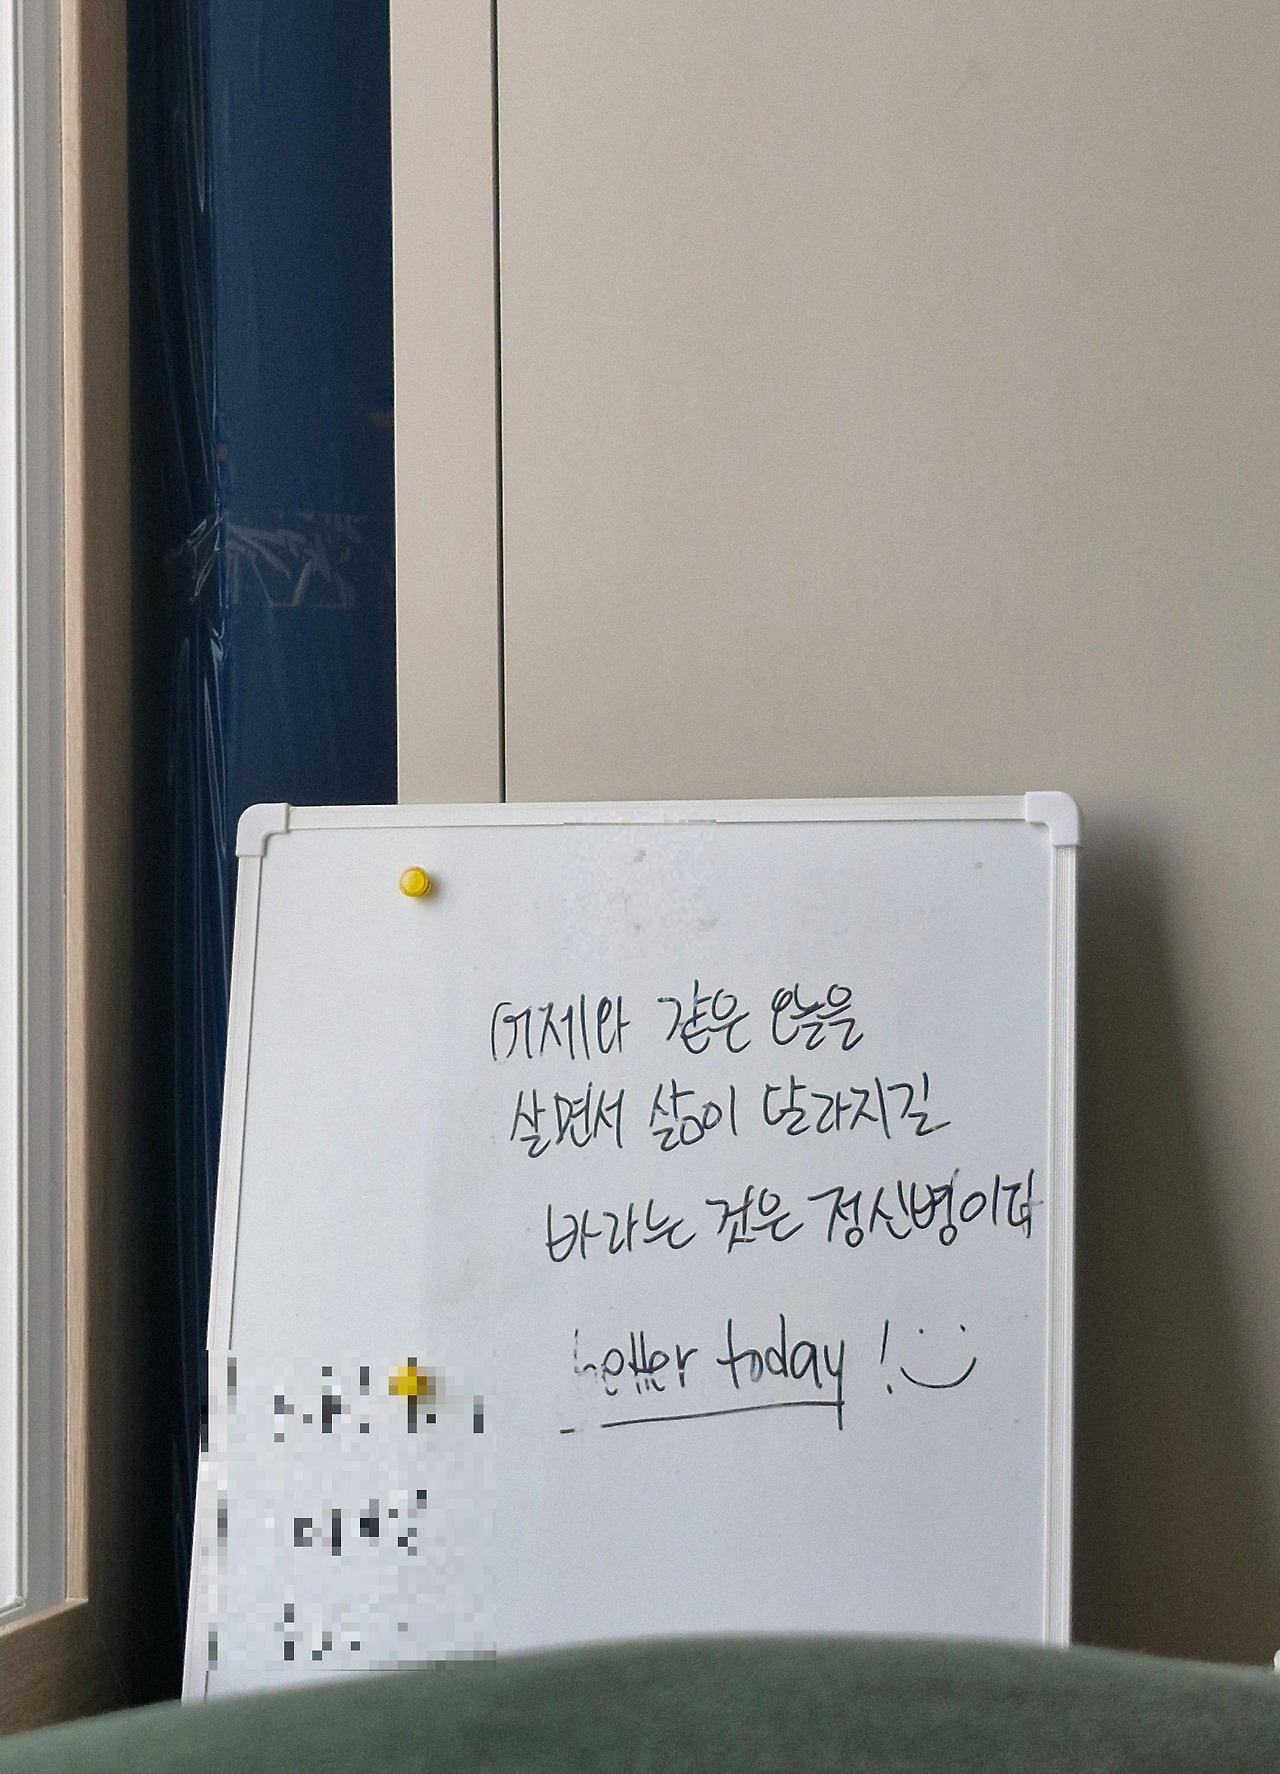 어제와 같은 오늘을
살면서 삶이 달라지길
바라는 것은 정신병이다
better today !